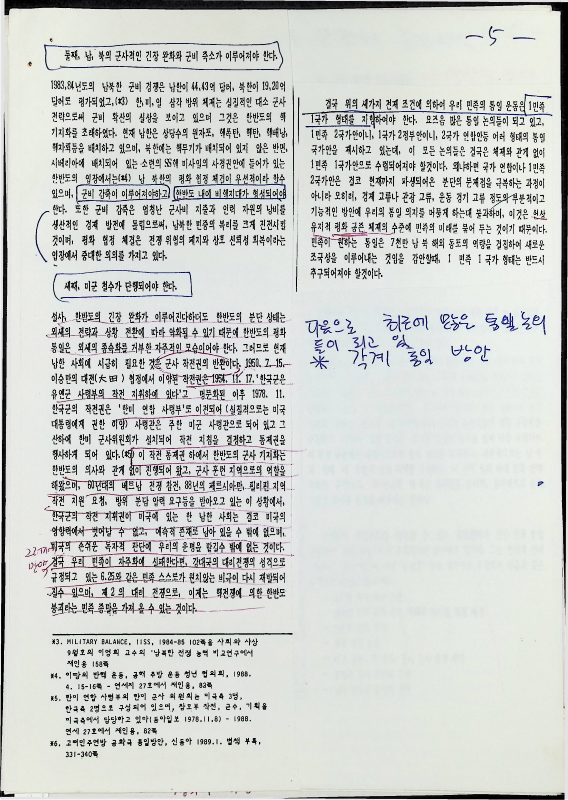 -5-
둘째, 남, 북의 군사적인 긴장 완화와 군비 축소가 이루어져야 한다.
1983,84년도의 남북한 군비 경쟁은 남한이 44.43억 달러, 북한이 19.20억
달러로 평가되었고,(※3) 한,미,일 삼각 방위 체제는 실질적인 대소 군사
전략으로 군비 확산의 실상을 보이고 있으며 그것은 한반도의 핵
기지화를 초래하였다. 현재 남한은 상당수의 원자포, 핵폭탄, 핵탄, 핵배낭,
핵자뢰등을 배치하고 있으며, 북한에는 핵무기가 배치되어 있지 않은 반면,
시베리아에 배치되어 있는 소련의 SS계 미사일의 사정권안에 들어가 있는
한반도의 입장에서는(※4) 남 북한의 평화 협정 체결이 우선적이라 할수
있으며, 군비 감축이 이루어져야하고 한반도 내에 비핵지대가 형성되어야
한다. 또한 군비 감축은 엄청난 군사비 지출과 인력 자원의 낭비를
생산적인 경제 발전에 돌림으로써, 남북한 민중의 복리를 크게 진전시킬
것이며, 평화 협정 체결은 전쟁 위협의 제거와 상호 신뢰성 회복이라는
입장에서 중대한 의의를 가지고 있다.
세째, 미군 철수가 단행되어야 한다.
설사, 한반도의 긴장 완화가 이루어진다하더도 한반도의 분단 상태는
외세의 전략과 상황 전환에 따라 악화될 수 있기 때문에 한반도의 평화
통일은 외세의 종속화를 거부한 자주적인 모습이어야 한다. 그러므로 현재
남한 사회에 시급히 필요한 것은 군사 작전권의 반환이다. 1950. 7. 15.
이승만의 대전(大田) 협정에서 이양된 작전권은 1954. 11. 17. '한국군은
유엔군 사령부의 작전 지휘하에 있다'고 명문화된 이후 1978. 11.
한국군의 작전권은 '한미 연합 사령부'로 이전되어 (실질적으로는 미국
대통령에게 권한 이양) 사령관은 주한 미군 사령관으로 되어 있고 그
산하에 한미 군사위원회가 설치되어 작전 지침을 결정하고 통제권을
행사하게 되어 있다.(※5) 이 작전 통제권 하에서 한반도의 군사 기지화는
한반도의 의사와 관계 없이 진행되어 왔고, 군사 훈련 지역으로의 역할을
해왔으며, 60년대의 베트남 전쟁 참전, 88년의 페르시아만, 필리핀 지역
작전 지원 요청, 방위 분담 압력 요구등을 받아오고 있는 이 상황에서,
한국군의 작전 지휘권이 미국에 있는 한 남한 사회는 결코 미국의
영향력에서 벗어날 수 없고, 예속적 존재로 남아 있을 수 밖에 없으며,
미국의 손위은 독자적 판단에 우리의 운명을 맡길수 밖에 없는 것이다.
결국 우리 민족이 자주화에 실패한다면, 강대국의 대리전쟁의 성격으로
규정되고 있는 6.25와 같은 민족 스스로가 원치않는 비극이 다시 재발되어
질수 있으며, 제2의 대리 전쟁으로, 이제는 핵전쟁에 의한 한반도
불괴라는 민족 종말을 가져 올 수 있는 것이다.
※3. MILITARY BALANCE, IISS, 1984-85 102쪽을 사회와 사상
9월호의 이영희 교수의 '남북한 전쟁 능력 비교연구에서
재인용 158쪽
※4. 이땅의 반핵 운동, 공해 추방 운동 청년 협의회, 1988.
4. 15-16쪽 - 연세지 27호에서 재인용, 83쪽
※5. 한미 연합 사령부의 한미 군사 위원회는 미국측 3명,
한국측 2명으로 구성되어 있으며, 참모부 작전, 군수, 기획을
미국측에서 담당하고 있다(동아일보 1978.11.8) - 1988.
연세 27호에서 재인용, 82쪽
※6. 고려민주연방 공화국 통일방안, 신동아 1989.1. 별책 부록,
331-340쪽
결국 위의 세가지 전제 조건에 의하여 우리 민족의 통일 운동은 1민족
1국가 형태를 지향하여야 한다. 요즈음 많은 통일 논의들이 되고 있고,
1민족 2국가안이니, 1국가 2정부안이니, 2국가 연합안등 여러 형태의 통일
국가안을 제시하고 있는데, 이 모든 논의들은 결국은 체제와 관계 없이
1민족 1국가안으로 수렴되어져야 할것이다. 왜냐하면 국가 연합이나 1민족
2국가안은 결코 현재까지 파생되어온 분단의 문제점을 극복하는 과정이
아니라 오히려, 경제 교류나 관광 교류, 운동 경기 교류 정도의 부분적이고
기능적인 방안에 우리의 통일 의지를 머물게 하는데 불과하며, 이것은 현상
유지적 평화 공존 체제의 수준에 민족의 미래를 묶어 두는 것이기 때문이다.
민족이 원하는 통일은 7천만 남 북 해외 동포의 역량을 결집하여 새로운
조국상을 이루어내는 것임을 감안할때, 1 민족 1국가 형태는 반드시
추구되어져야 할것이다.
다음으로 최근에 많은 통일 논의
들이 되고 있
※ 각계 통일 방안